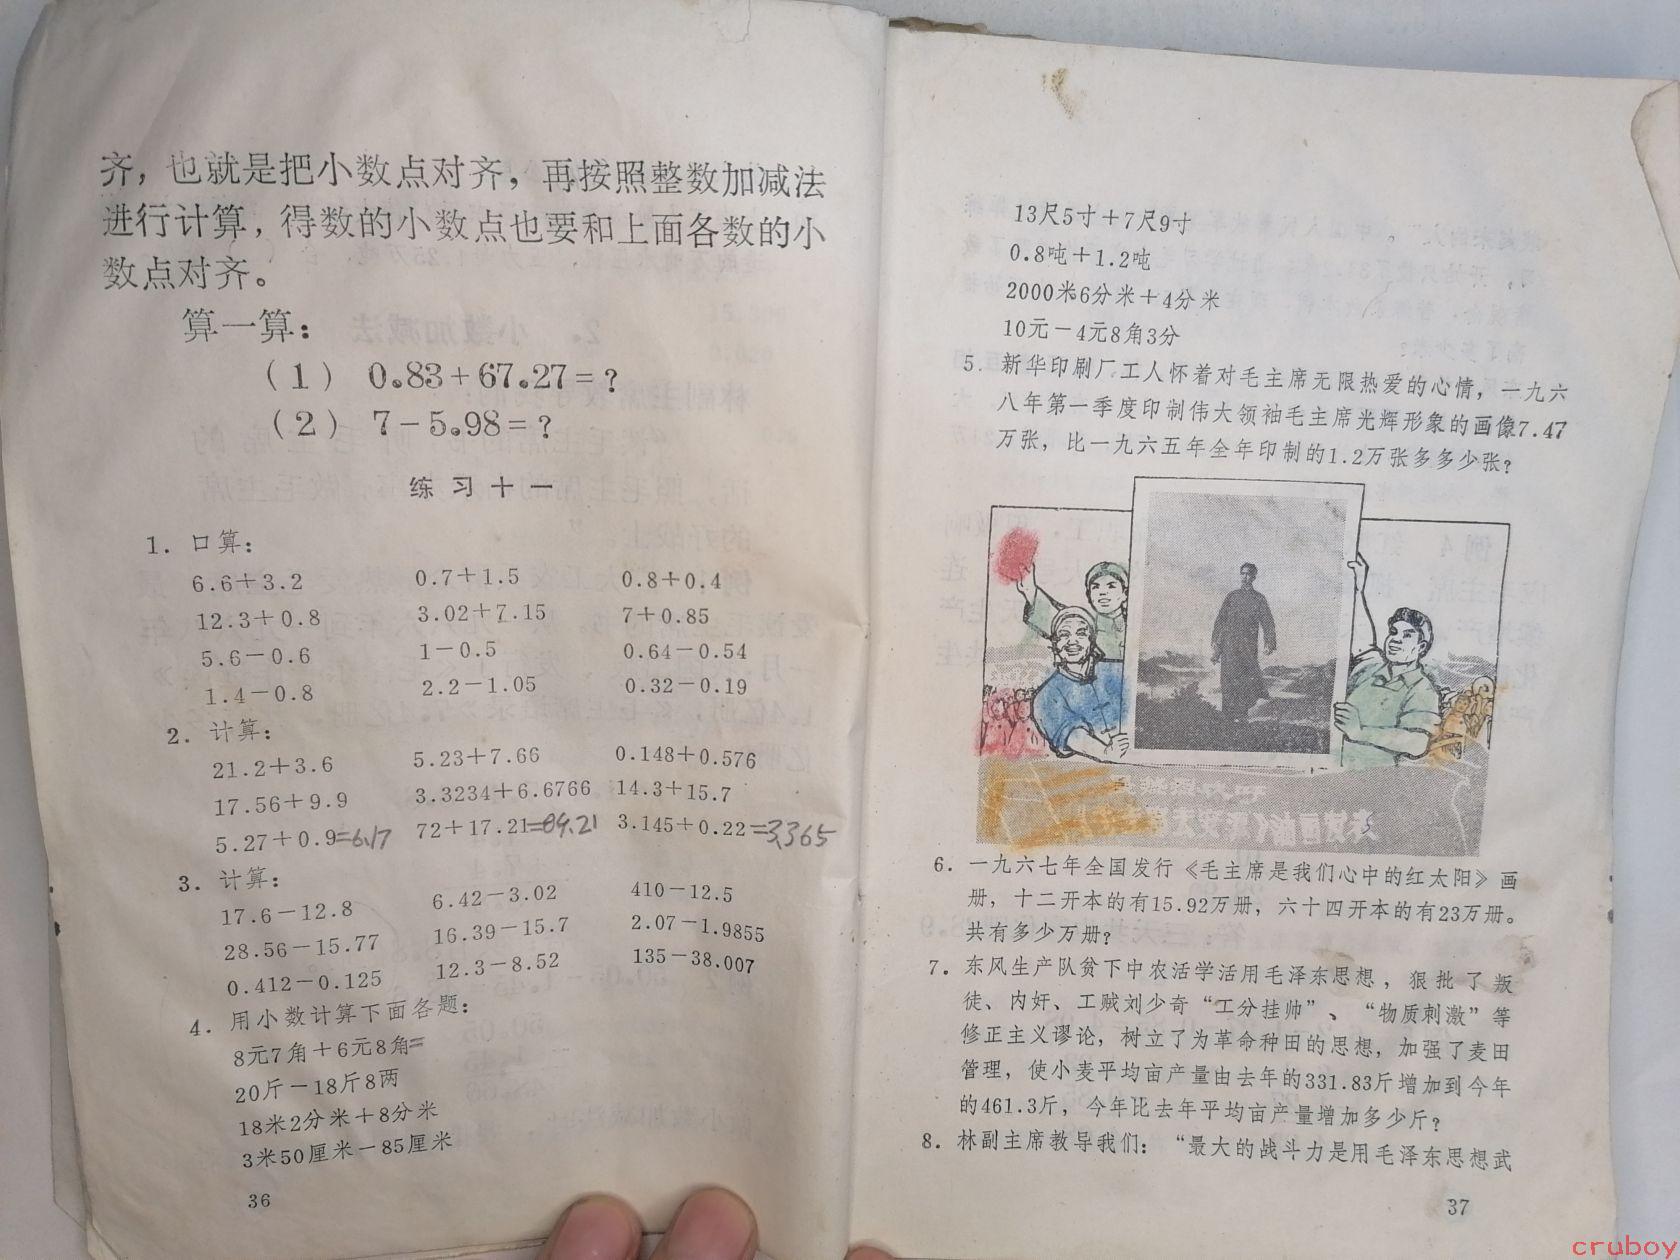 齐，也就是把小数点对齐，再按照整数加减法
进行计算，得数的小数点也要和上面各数的小
数点对齐。
算一算：
（1） 0.83+67.27=?
（2） 7-5.98=?
练习十一
1. 口算：
6.6+3.2 0.7+1.5 0.8+0.4
12.3+0.8 3.02+7.15 7+0.85
5.6-0.6 1-0.5 0.64-0.54
1.4-0.8 2.2-1.05 0.32-0.19
2. 计算：
21.2+3.6 5.23+7.66 0.148+0.576
17.56+9.9 3.3234+6.6766 14.3+15.7
5.27+0.9=6.17 72+17.21=89.21 3.145+0.22=3.365
3. 计算：
17.6-12.8 6.42-3.02 410-12.5
28.56-15.77 16.39-15.7 2.07-1.9855
0.412-0.125 12.3-8.52 135-38.007
4. 用小数计算下面各题：
8元7角+6元8角=
20斤-18斤8两
18米2分米+8分米
3米50厘米-85厘米
36
13尺5寸+7尺9寸
0.8吨+1.2吨
2000米6分米+4分米
10元-4元8角3分
5. 新华印刷厂工人怀着对毛主席无限热爱的心情，一九六
八年第一季度印制伟大领袖毛主席光辉形象的画像7.47
万张，比一九六五年全年印制的1.2万张多多少张？
6. 一九六七年全国发行《毛主席是我们心中的红太阳》画
册，十二开本的有15.92万册，六十四开本的有23万册。
共有多少万册？
7. 东风生产队贫下中农活学活用毛泽东思想，狠批了叛
徒、内奸、工贼刘少奇“工分挂帅”、“物质刺激”等
修正主义谬论，树立了为革命种田的思想，加强了麦田
管理，使小麦平均亩产量由去年的331.83斤增加到今年
的461.3斤，今年比去年平均亩产量增加多少斤？
8. 林副主席教导我们：“最大的战斗力是用毛泽东思想武
37
cruboy